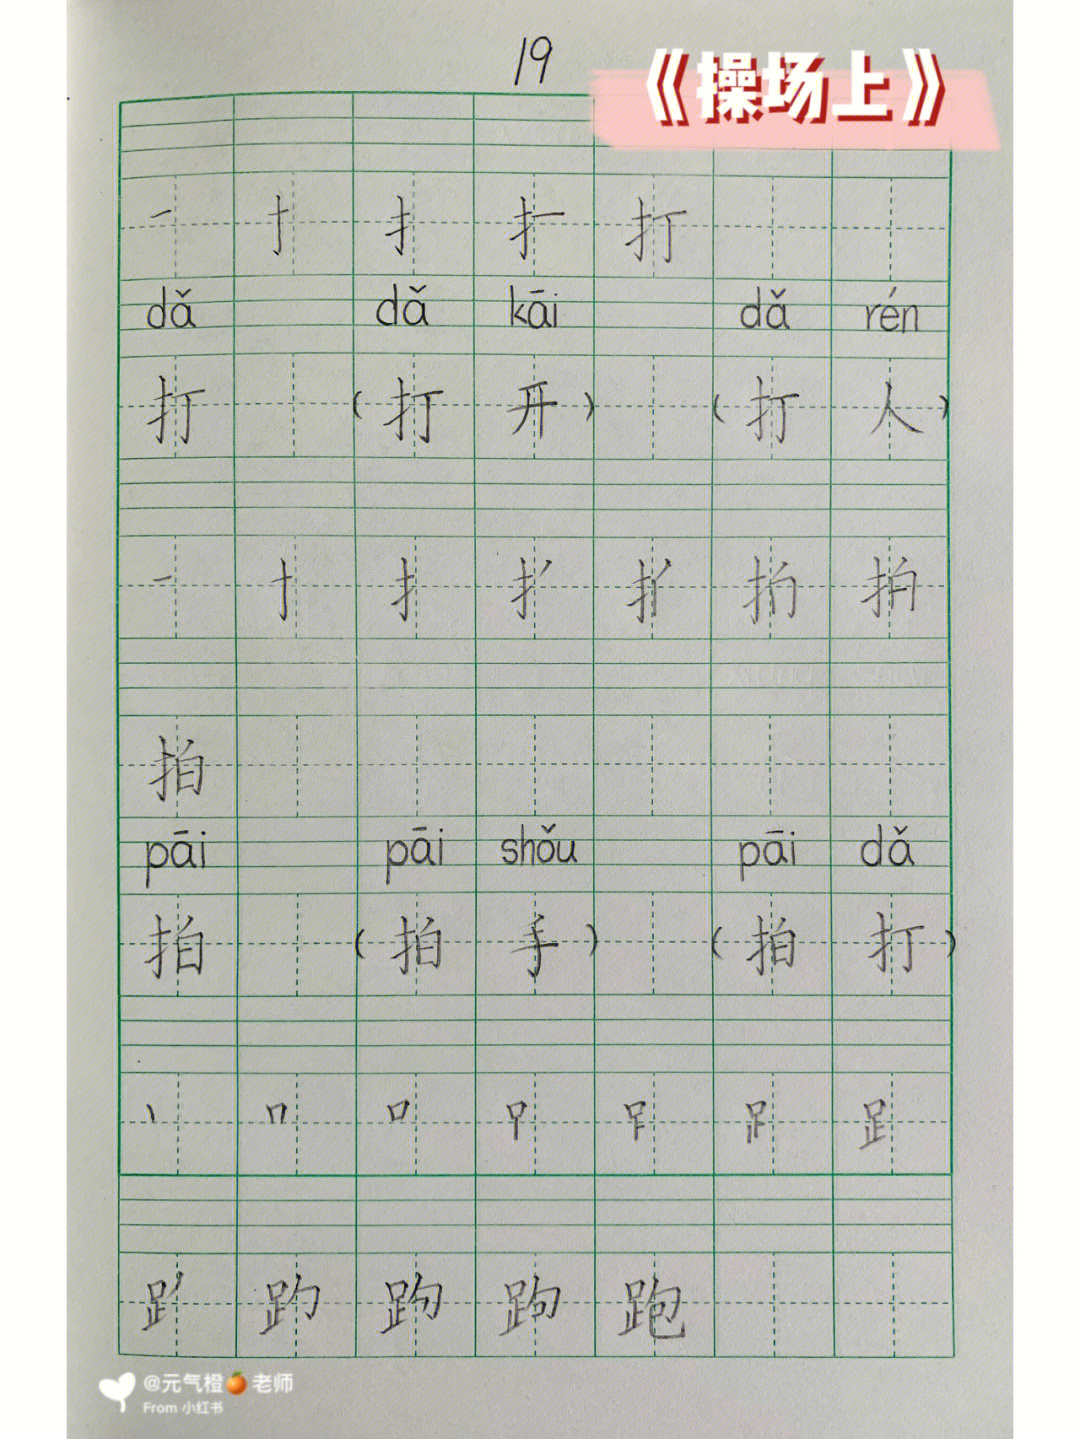 19
《操场上》
一 十 扌 扌 打
dǎ dǎ kāi dǎ rén
打 (打 开) (打 人)
拍
拍
pāi pāi shǒu pāi dǎ
拍 (拍 手) (拍 打)
丶 口 足
跑
@元气橙🍊老师
From 小红书